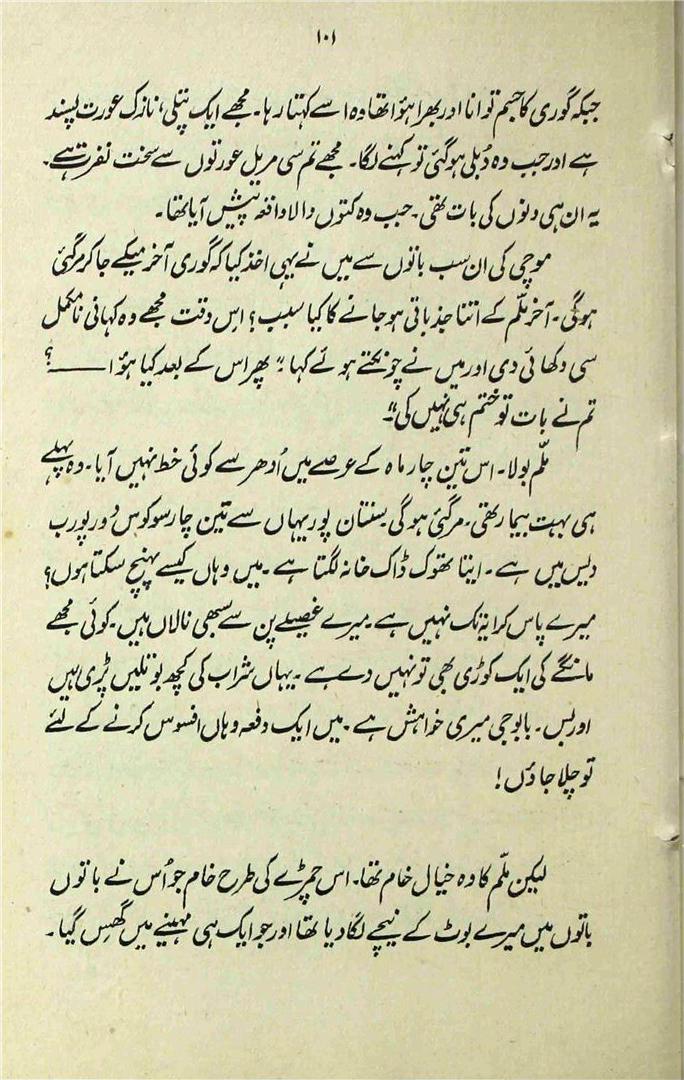 ۱۰۱
جبکہ گوری کا جسم توانا اور بھرا ہوُا تھا وہ اسے کہتا رہا۔ مجھے ایک پتلی، نازک عورت پسند
ہے اور جب وہ دُبلی ہو گئی تو کہنے لگا۔ مجھے تم سی مریل عورتوں سے سخت نفرت ہے۔
یہ ان ہی دنوں کی بات تھی۔ جب وہ کتوں والا واقعہ پیش آیا تھا۔
موچی کی ان سب باتوں سے میں نے یہی اخذ کیا کہ گوری آخر میکے جا کر مر گئی
ہو گی۔ آخر ملّم کے اتنا جذباتی ہو جانے کا کیا سبب؟ اس وقت مجھے وہ کہانی نامکمل
سی دکھائی دی اور میں نے چونکتے ہوئے کہا۔ "پھر اس کے بعد کیا ہوُا ——؟
تم نے بات تو ختم ہی نہیں کی"
ملّم بولا۔ اس تین چار ماہ کے عرصے میں اُدھر سے کوئی خط نہیں آیا۔ وہ پہلے
ہی بہت بیمار تھی۔ مر گئی ہو گی۔ سنتان پور یہاں سے تین چار سو کوس دور پورب
دیس میں ہے۔ اپنا تھوک ڈاک خانہ لگتا ہے۔ میں وہاں کیسے پہنچ سکتا ہوں؟
میرے پاس کرایہ تک نہیں ہے۔ میرے غصیلے پن سے سبھی نالاں ہیں۔ کوئی مجھے
مانگے کی ایک کوڑی بھی تو نہیں دے ہے۔ یہاں شراب کی کچھ بوتلیں پڑی ہیں
اور بس۔ بابو جی میری خواہش ہے۔ میں ایک دفعہ وہاں افسوس کرنے کے لئے
تو چلا جاؤں!
لیکن ملّم کا وہ خیال خام تھا۔ اس چمڑے کی طرح خام جو اُس نے باتوں
باتوں میں میرے بوٹ کے نیچے لگا دیا تھا اور جو ایک ہی مہینے میں گھِس گیا۔